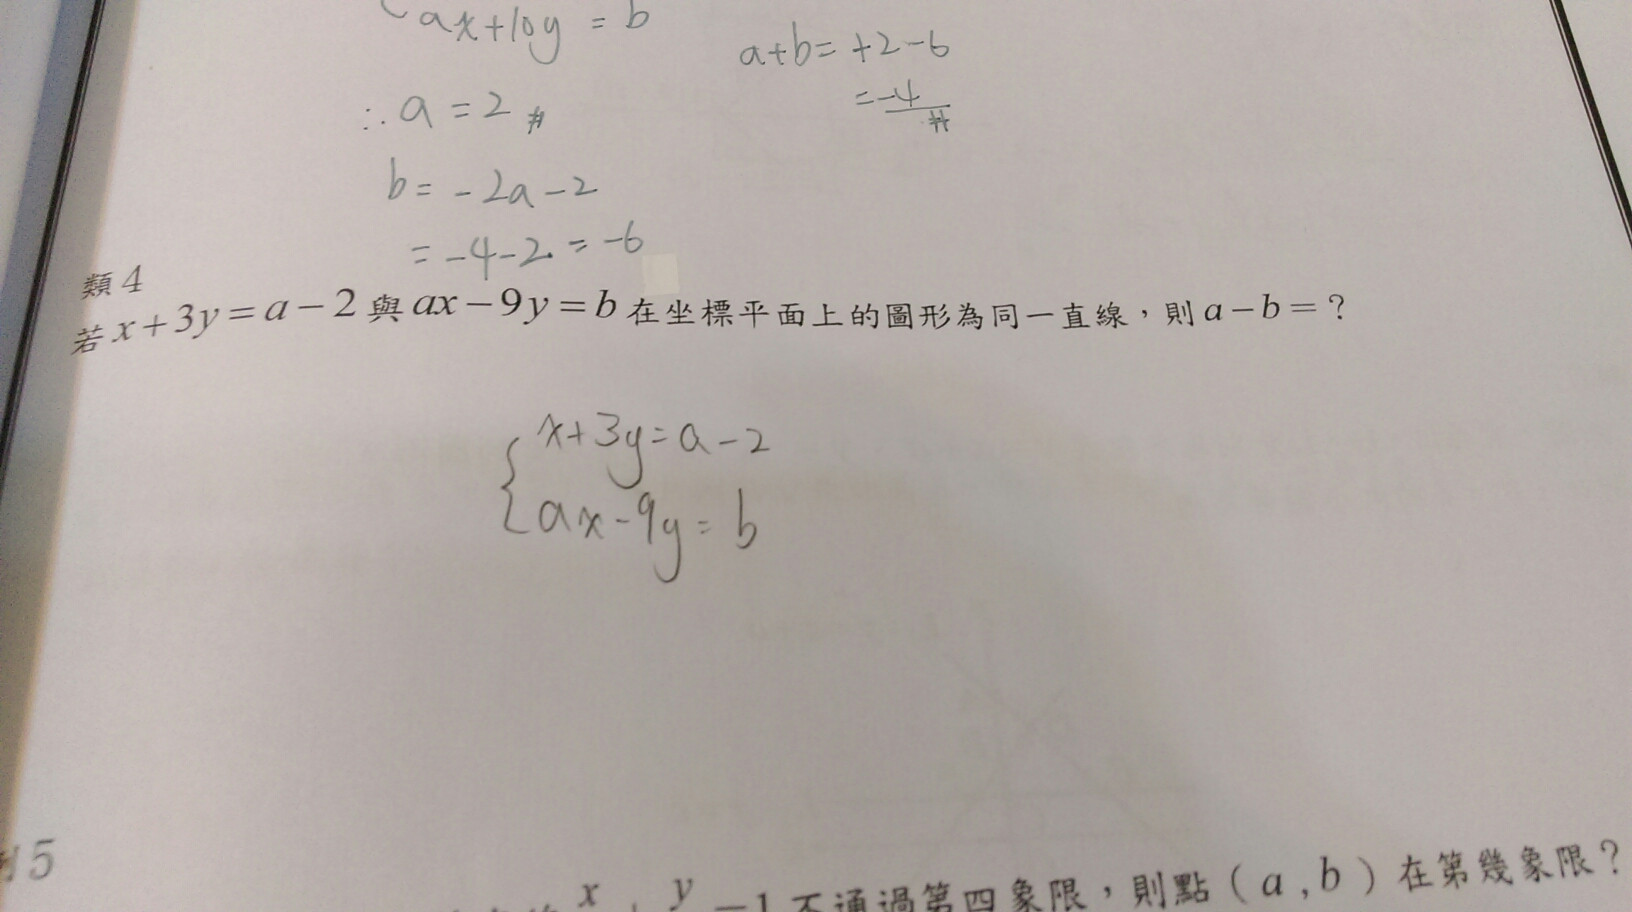 ax+10y = b
a+b= +2-6
= -4 #
∴ a = 2 #
b = -2a-2
= -4-2 = -6
類4
若x+3y=a-2與ax-9y=b在坐標平面上的圖形為同一直線，則a-b=？
x+3y=a-2
ax-9y=b
5
x y =1不通過第四象限，則點（a,b）在第幾象限？